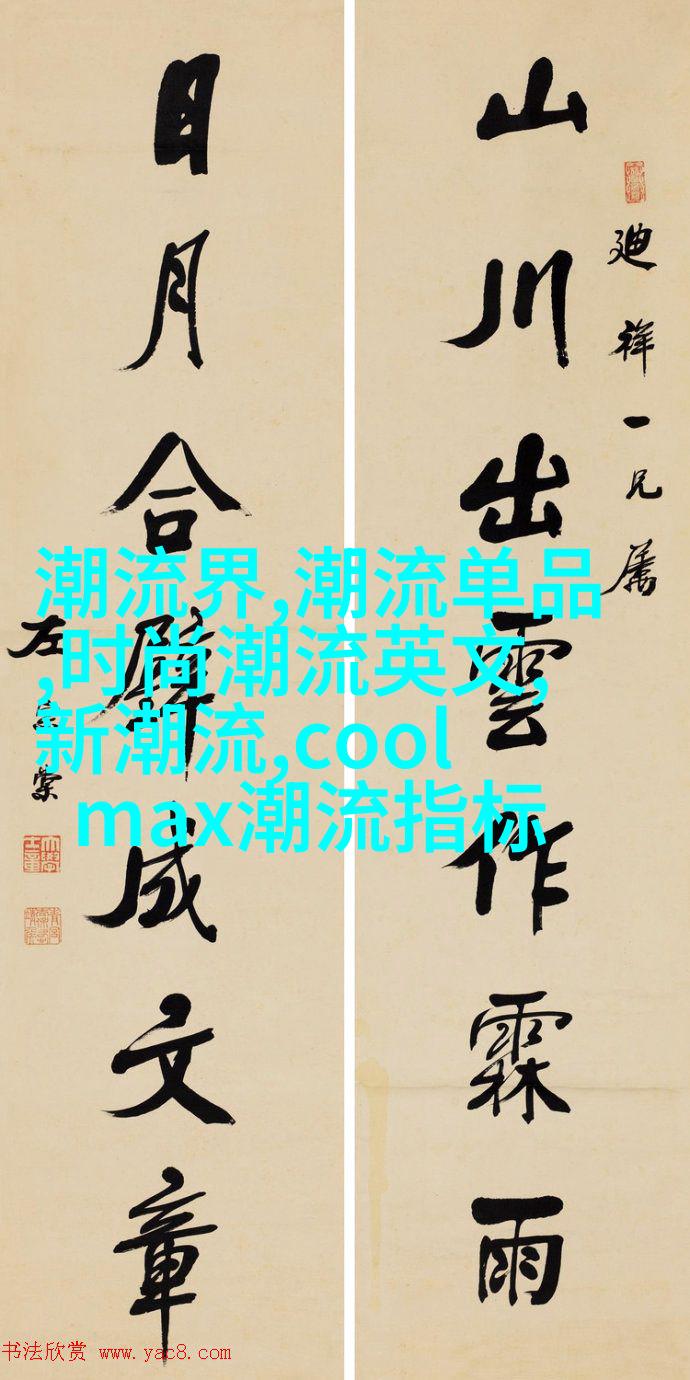 山川出雲作霖雨
廸祥一兄屬
日月合璧成文章
左宗棠
潮流界,潮流单品
,时尚潮流英文,
新潮流,cool
max潮流指标
书法欣赏 www.yac8.com